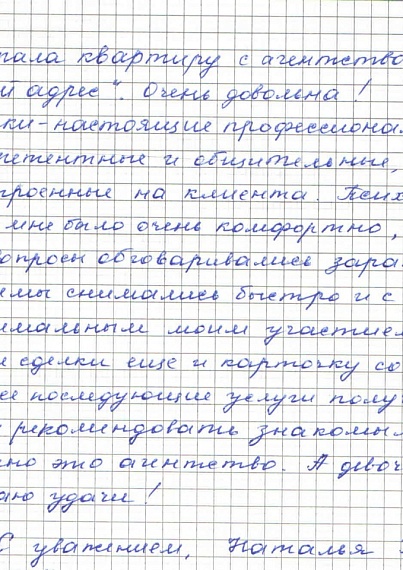 пала квартиру с агентство
й адрес". Очень довольна!
ки-настоящие профессиона
петентные и общительные,
троенные на клиента. Псих
мне было очень комфортно,
опросы обговаривались зара
емы снимались быстро и с
имальным моим участием
и сделки еще и карточку со
ее последующие услуги полу
рекомендовать знакомым
но это агентство. А девоч
аю удачи!
С уважением, Наталья